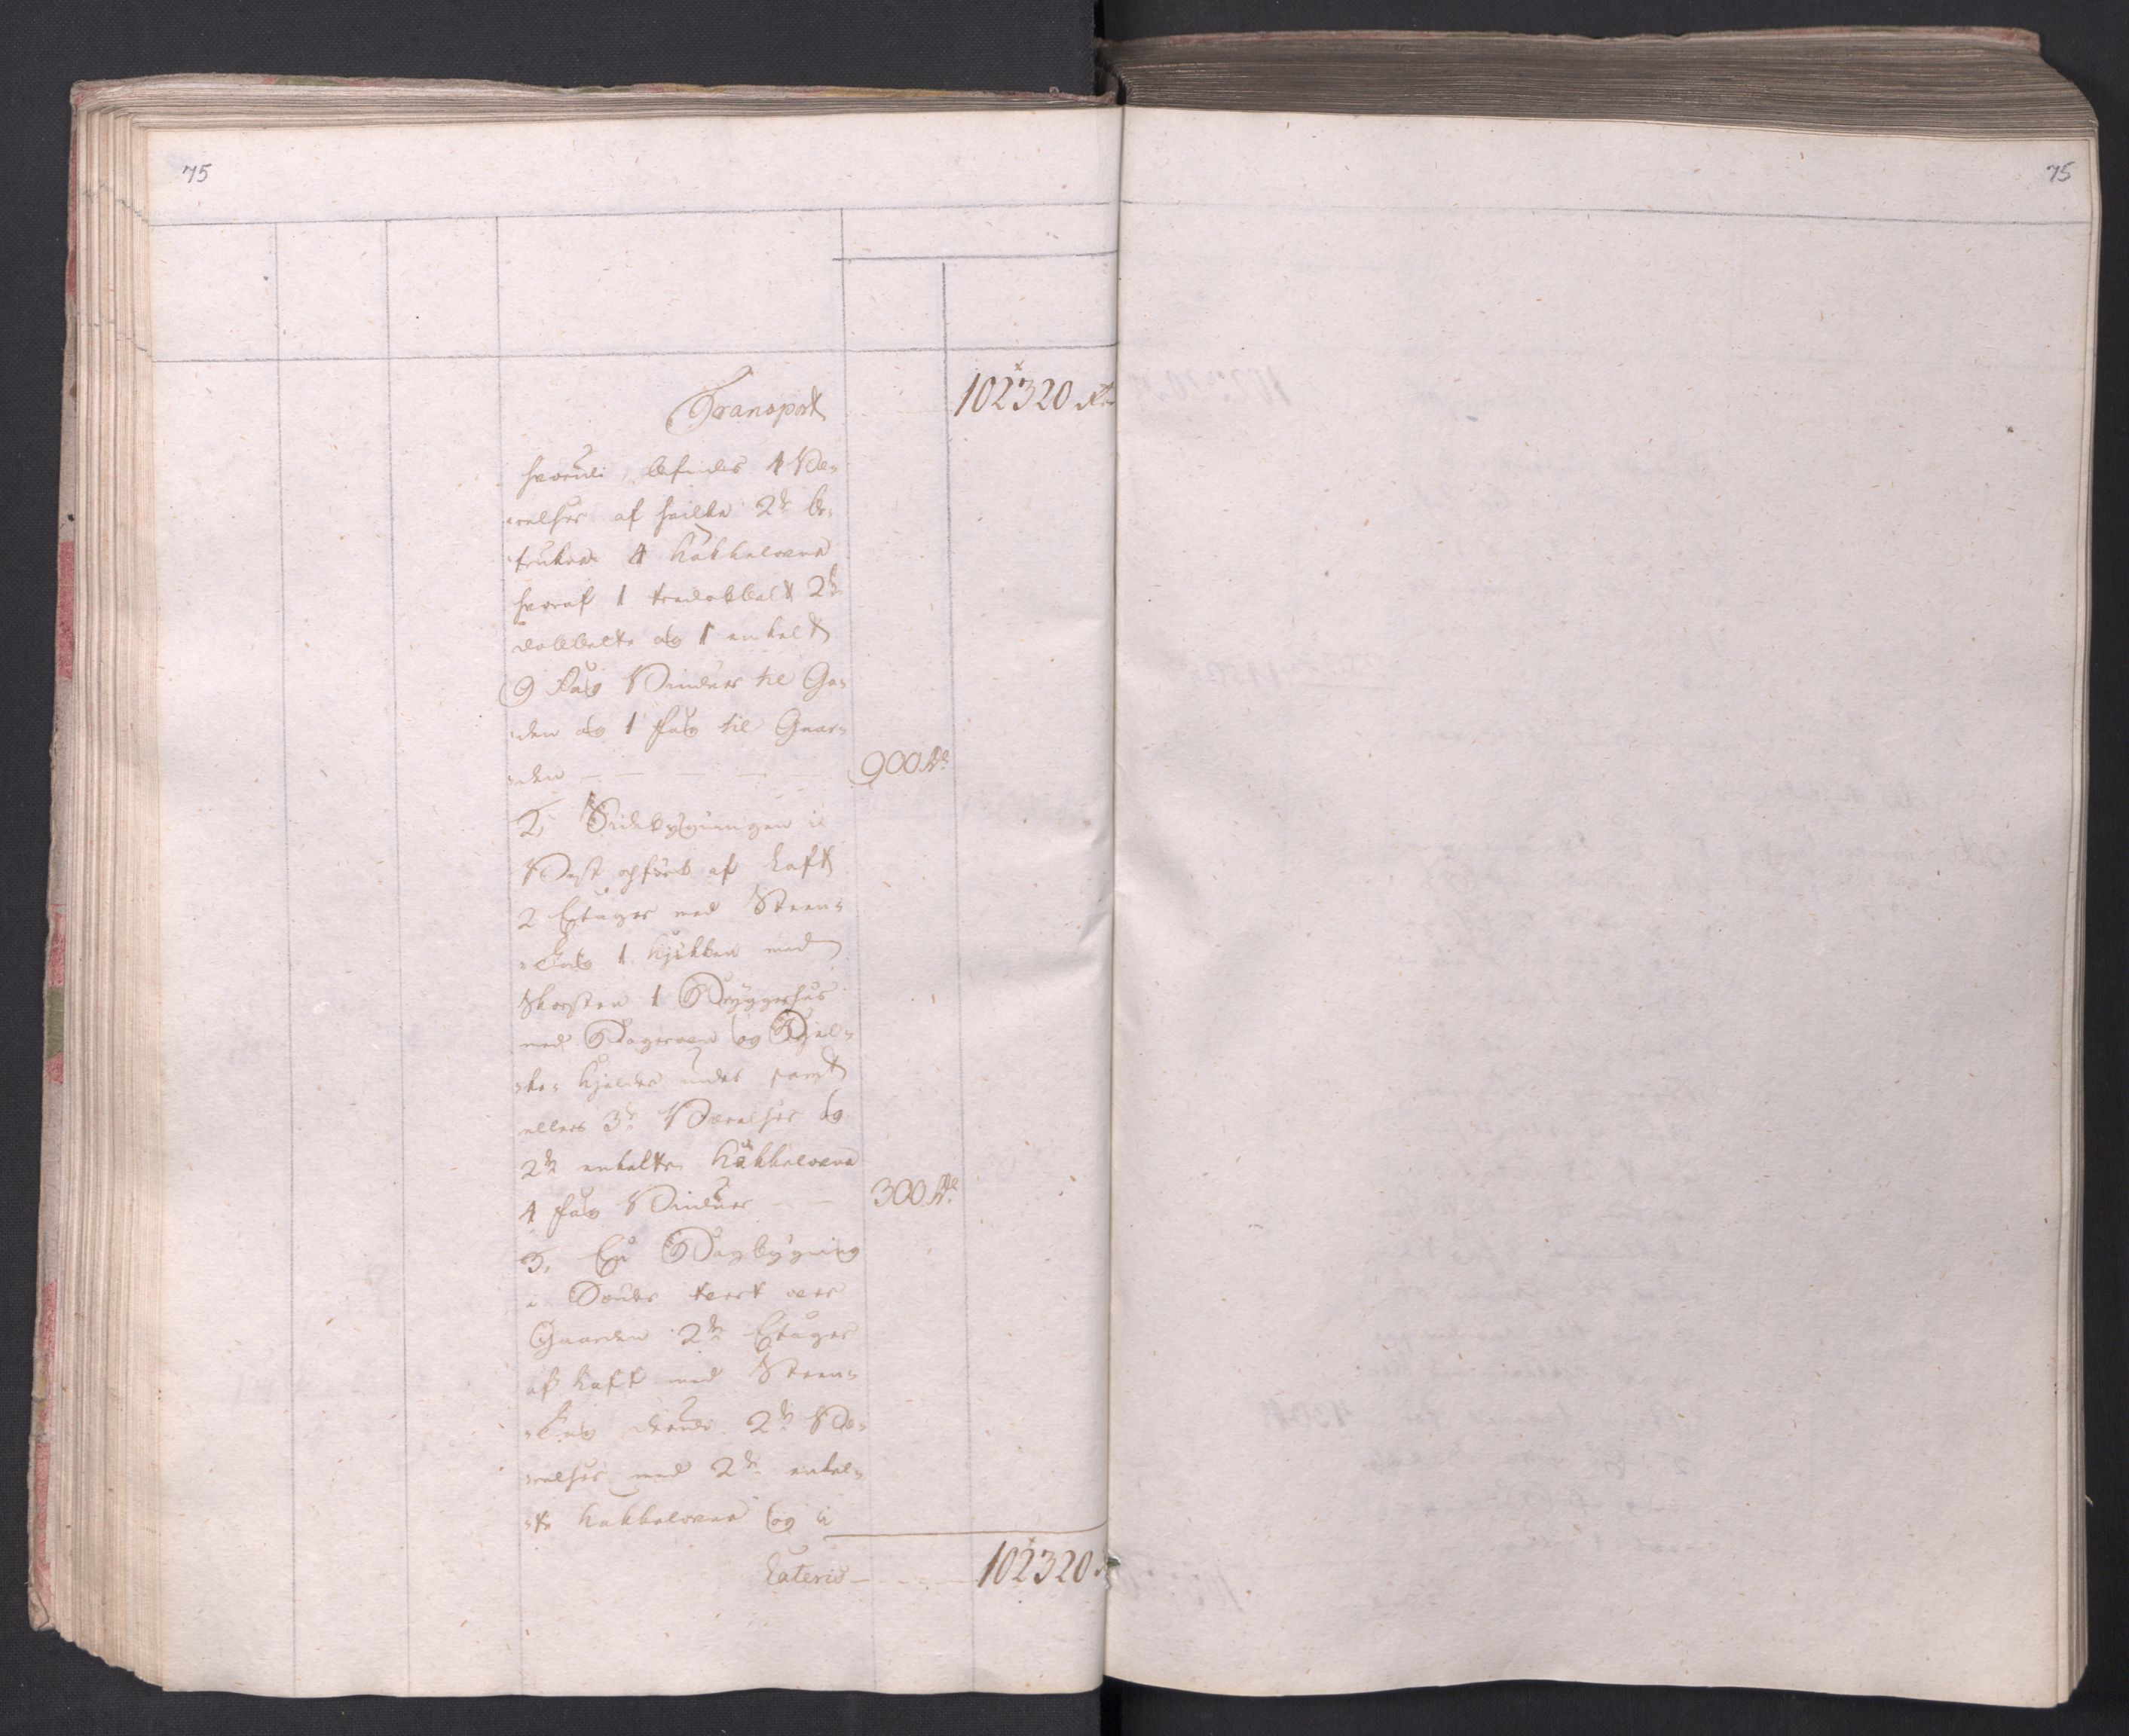 75
75
Transport 102320 Rd
hvorudi befindes 4 Væ=
=relser af hvilke 2de be=
=trukne 4 Kakkelovne
hvoraf 1 tredobbelt 2de
dobbelte og 1 enkelt
9 Fag Vinduer til Ga=
=den og 1 fag til Gaar=
=den — — — — 900 Rd
2, Sidebygningen i
Vest opført af Laft
2 Etager med Steen=
=Tag 1 Kjøkken med
Skorsten 1 Bryggerhus
med Bagerovn og
Kjelder under samt
ellers 3de Værelser og
2de enkelte Kakkelovne
4 fag Vinduer — — 300 Rd
3, En Bagbygning
i tvert over
Gaarden 2de Etager
af Laft med Steen=
=Tag derudi 2de Væ=
=relser med 2de enkel=
=te Kakkelovne og i
Lateris — 102320